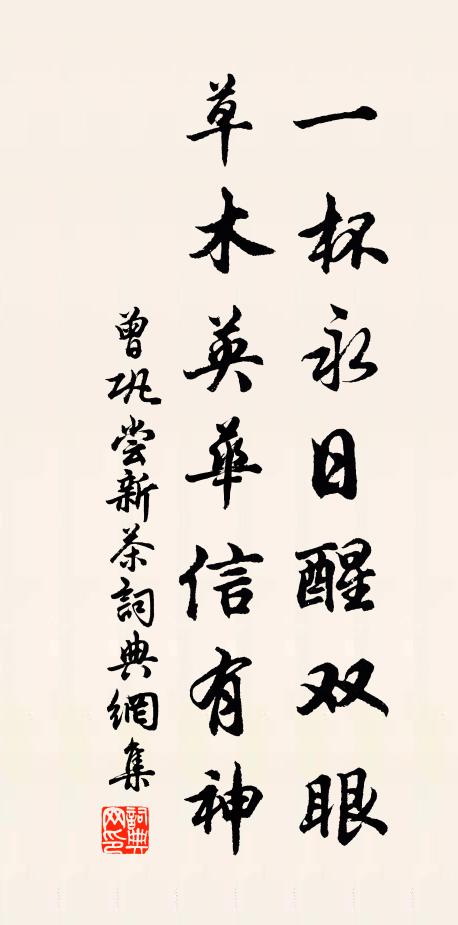 一杯永日醒双眼
草木英華信有神
曾巩嘗新茶詞典網集
詞典網印